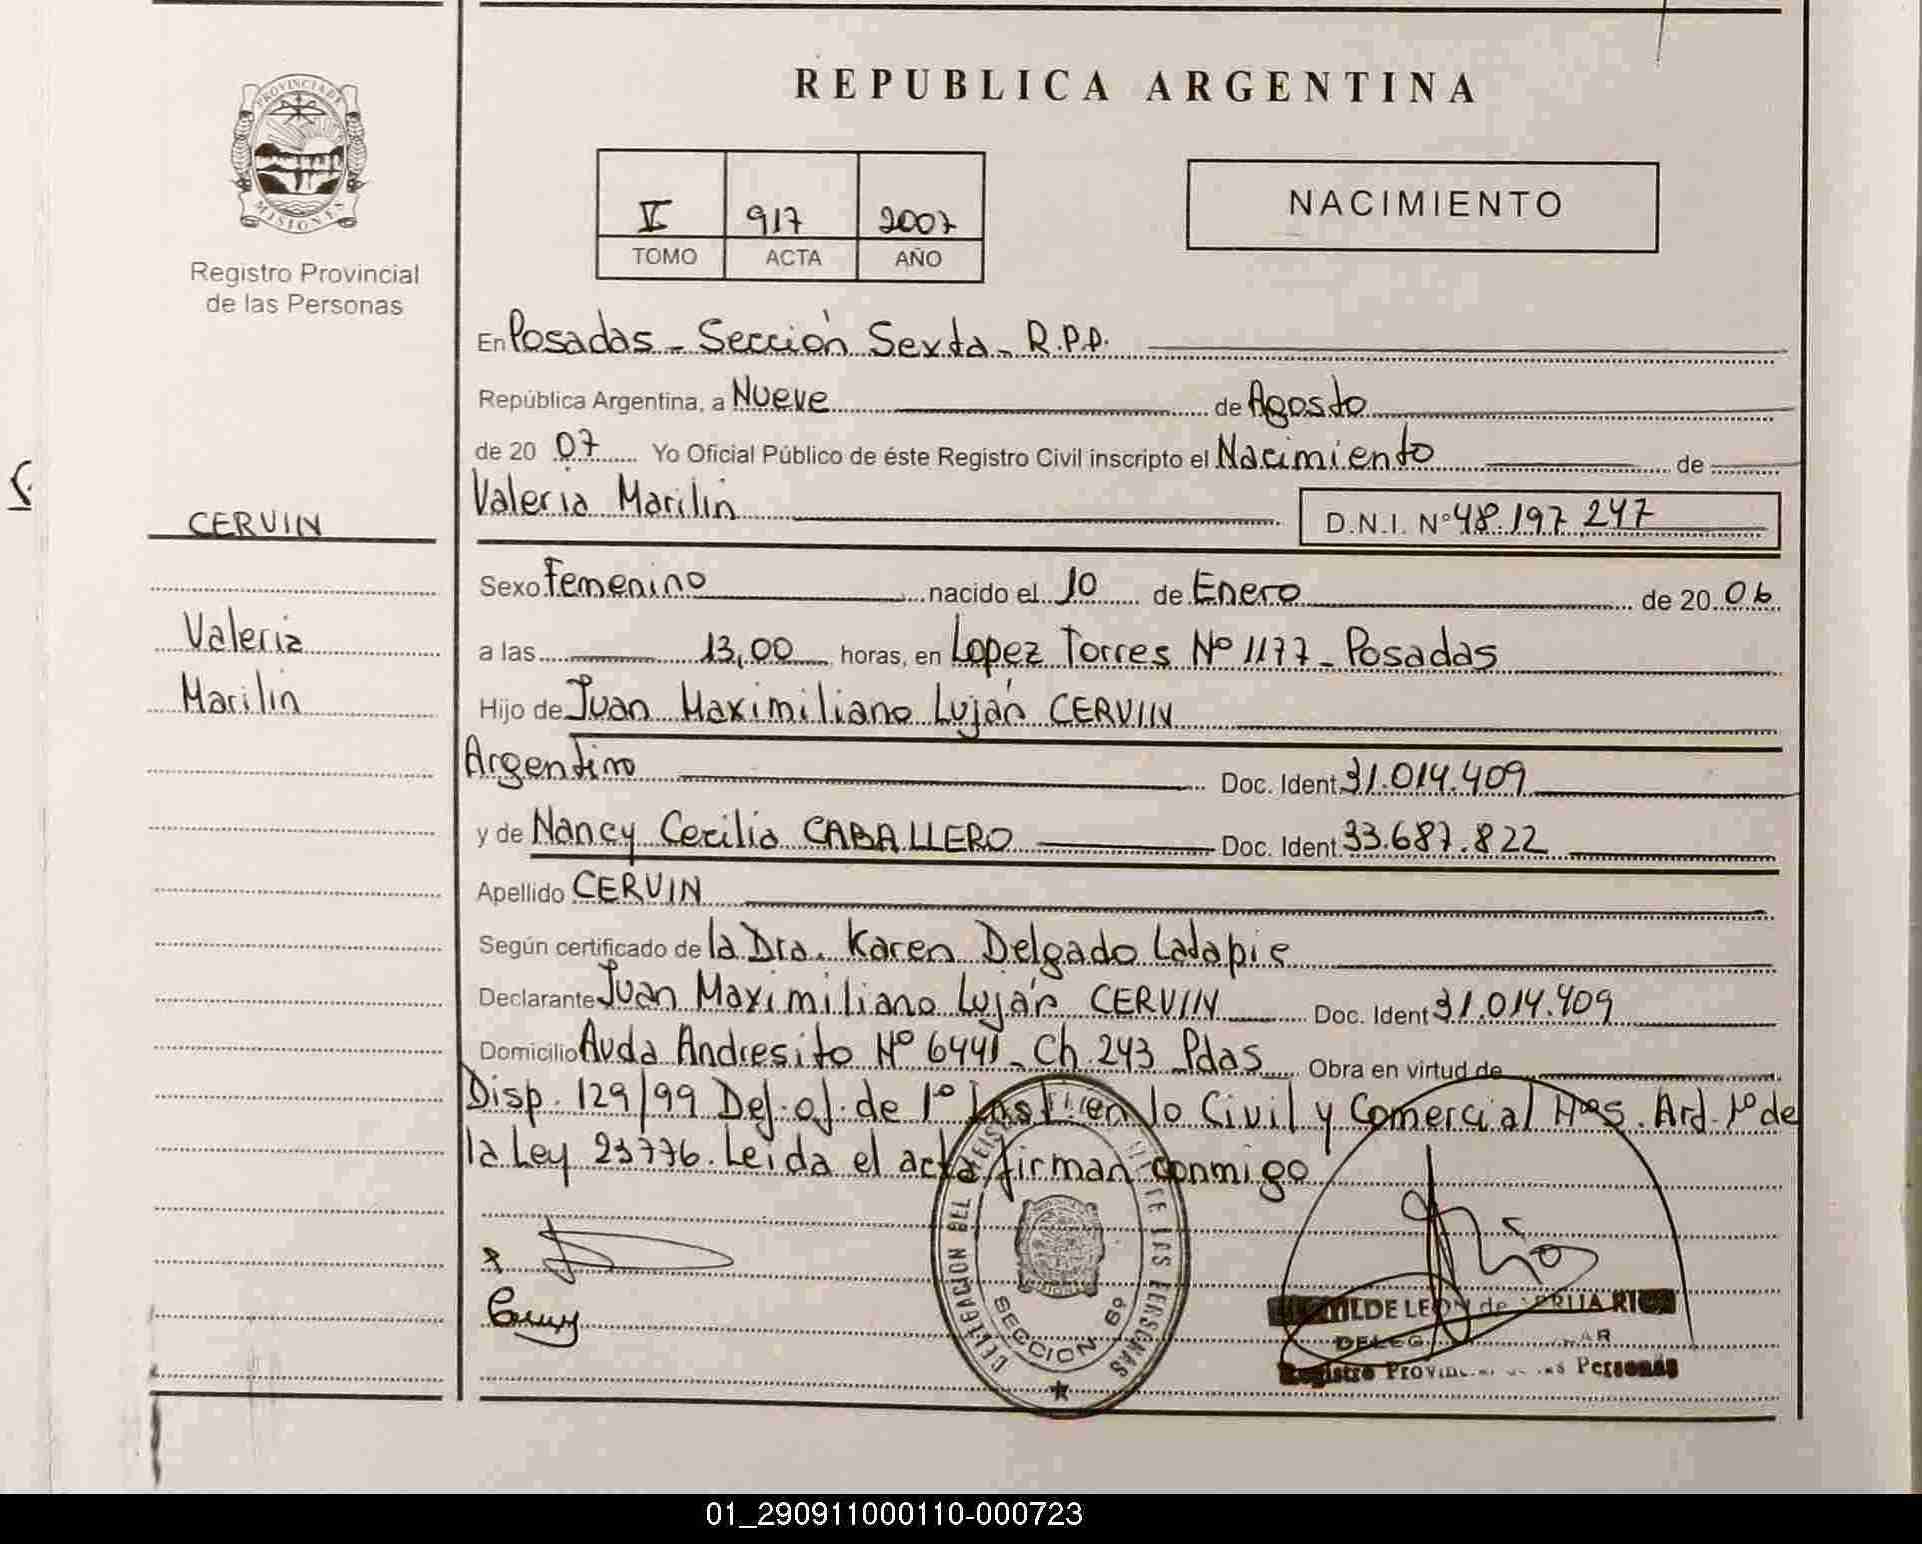 REPUBLICA ARGENTINA
PROVINCIA DE MISIONES
Registro Provincial
de las Personas
V 917 2007
TOMO ACTA AÑO
NACIMIENTO
En Posadas - Sección Sexta - R.P.P.
República Argentina, a Nueve de Agosto
de 20 07 Yo Oficial Público de éste Registro Civil inscripto el Nacimiento de
Valeria Marilin D.N.I. Nº 48.197.247
CERVIN
Valeria
Marilin
Sexo Femenino nacido el 10 de Enero de 20 06
a las 13,00 horas, en Lopez Torres Nº 1177 - Posadas
Hijo de Juan Maximiliano Luján CERVIN
Argentino Doc. Ident 31.014.409
y de Nancy Cecilia CABALLERO Doc. Ident. 33.687.822
Apellido CERVIN
Según certificado de la Dra. Karen Delgado Latapie
Declarante Juan Maximiliano Luján CERVIN Doc. Ident 31.014.409
Domicilio Avda Andresito Nº 6441 - Ch. 243 Pdas Obra en virtud de
Disp. 129/99 Def. of. de 1º Inst. en lo Civil y Comercial Art. 1º de
la Ley 23776. Leida el acta firman conmigo
DELEGACION DEL REGISTRO DE LAS PERSONAS
SECCION 6º
Registro Provincial de las Personas
01_290911000110-000723